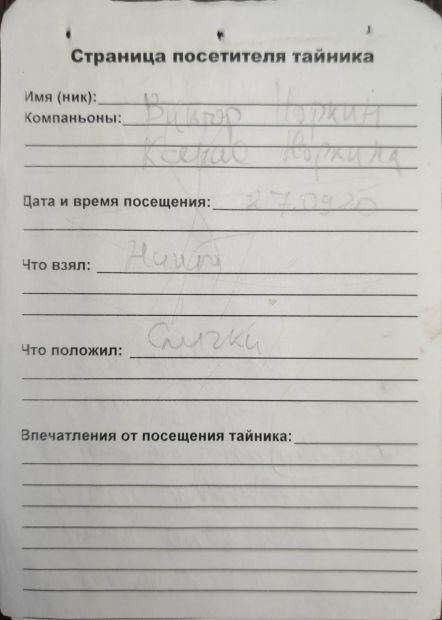 Страница посетителя тайника
Имя (ник):
Компаньоны: Виктор Норкин
Ксения Норкина
Дата и время посещения: 27.0920
Что взял:
Что положил: Спички
Впечатления от посещения тайника: